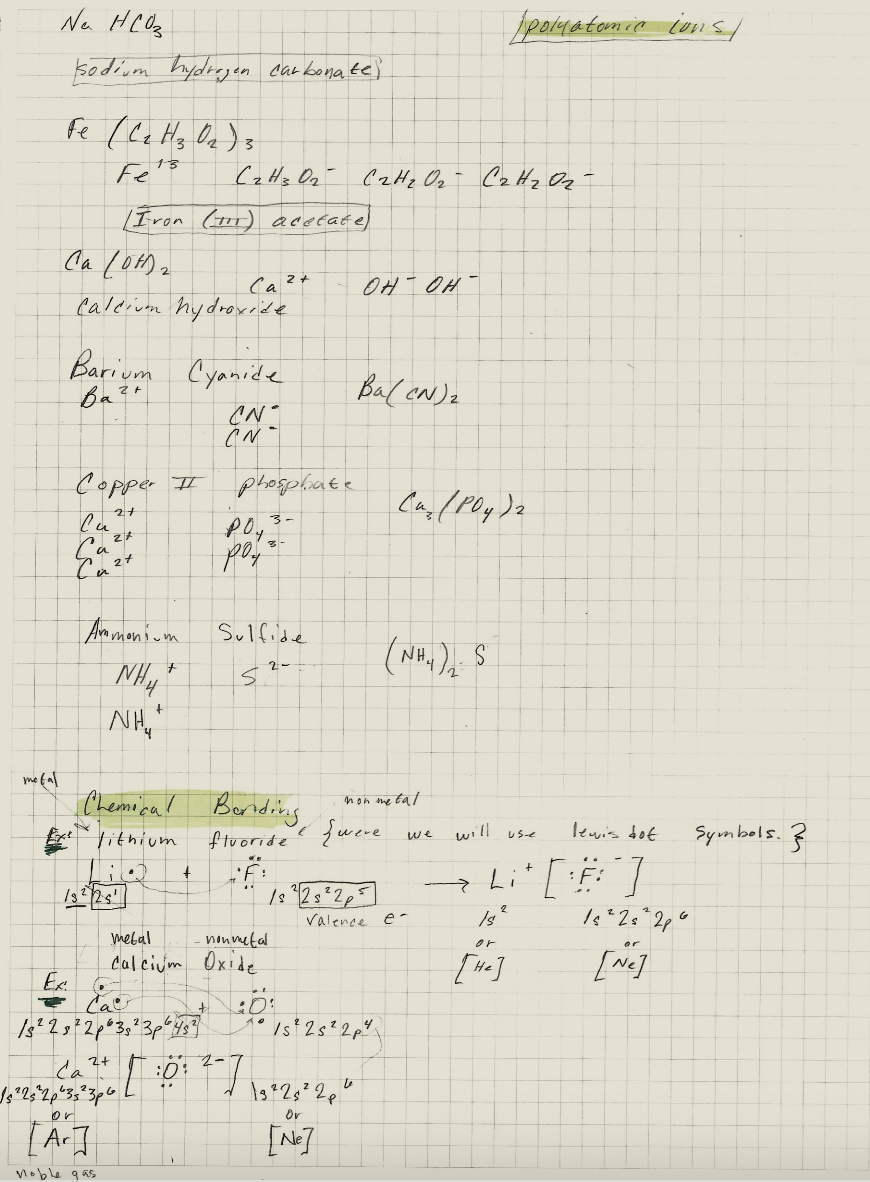 Na HCO₃ polyatomic ions
sodium hydrogen carbonate
Fe (C₂ H₃ O₂)₃
Fe⁺³ C₂H₃O₂⁻ C₂H₂O₂⁻ C₂H₂O₂⁻
Iron (III) acetate
Ca (OH)₂
Ca²⁺ OH⁻ OH⁻
calcium hydroxide
Barium Cyanide
Ba²⁺ Ba(CN)₂
CN⁻
CN⁻
Copper II phosphate
Cu₃(PO₄)₂
Cu²⁺ PO₄³⁻
Cu²⁺ PO₄³⁻
Cu²⁺
Ammonium Sulfide
NH₄⁺ S²⁻ (NH₄)₂ S
NH₄⁺
metal
Chemical Bonding nonmetal
Ex: lithium fluoride {were we will use lewis dot symbols.}
Li + F → Li⁺ [F]⁻
1s² 2s¹ 1s² 2s² 2p⁵
valence e⁻ 1s² 1s² 2s² 2p⁶
or or
[He] [Ne]
metal nonmetal
calcium Oxide
Ex:
Ca + O
1s² 2s² 2p⁶ 3s² 3p⁶ 4s² 1s² 2s² 2p⁴
Ca²⁺ [O]²⁻
1s² 2s² 2p⁶ 3s² 3p⁶ 1s² 2s² 2p⁶
or or
[Ar] [Ne]
noble gas